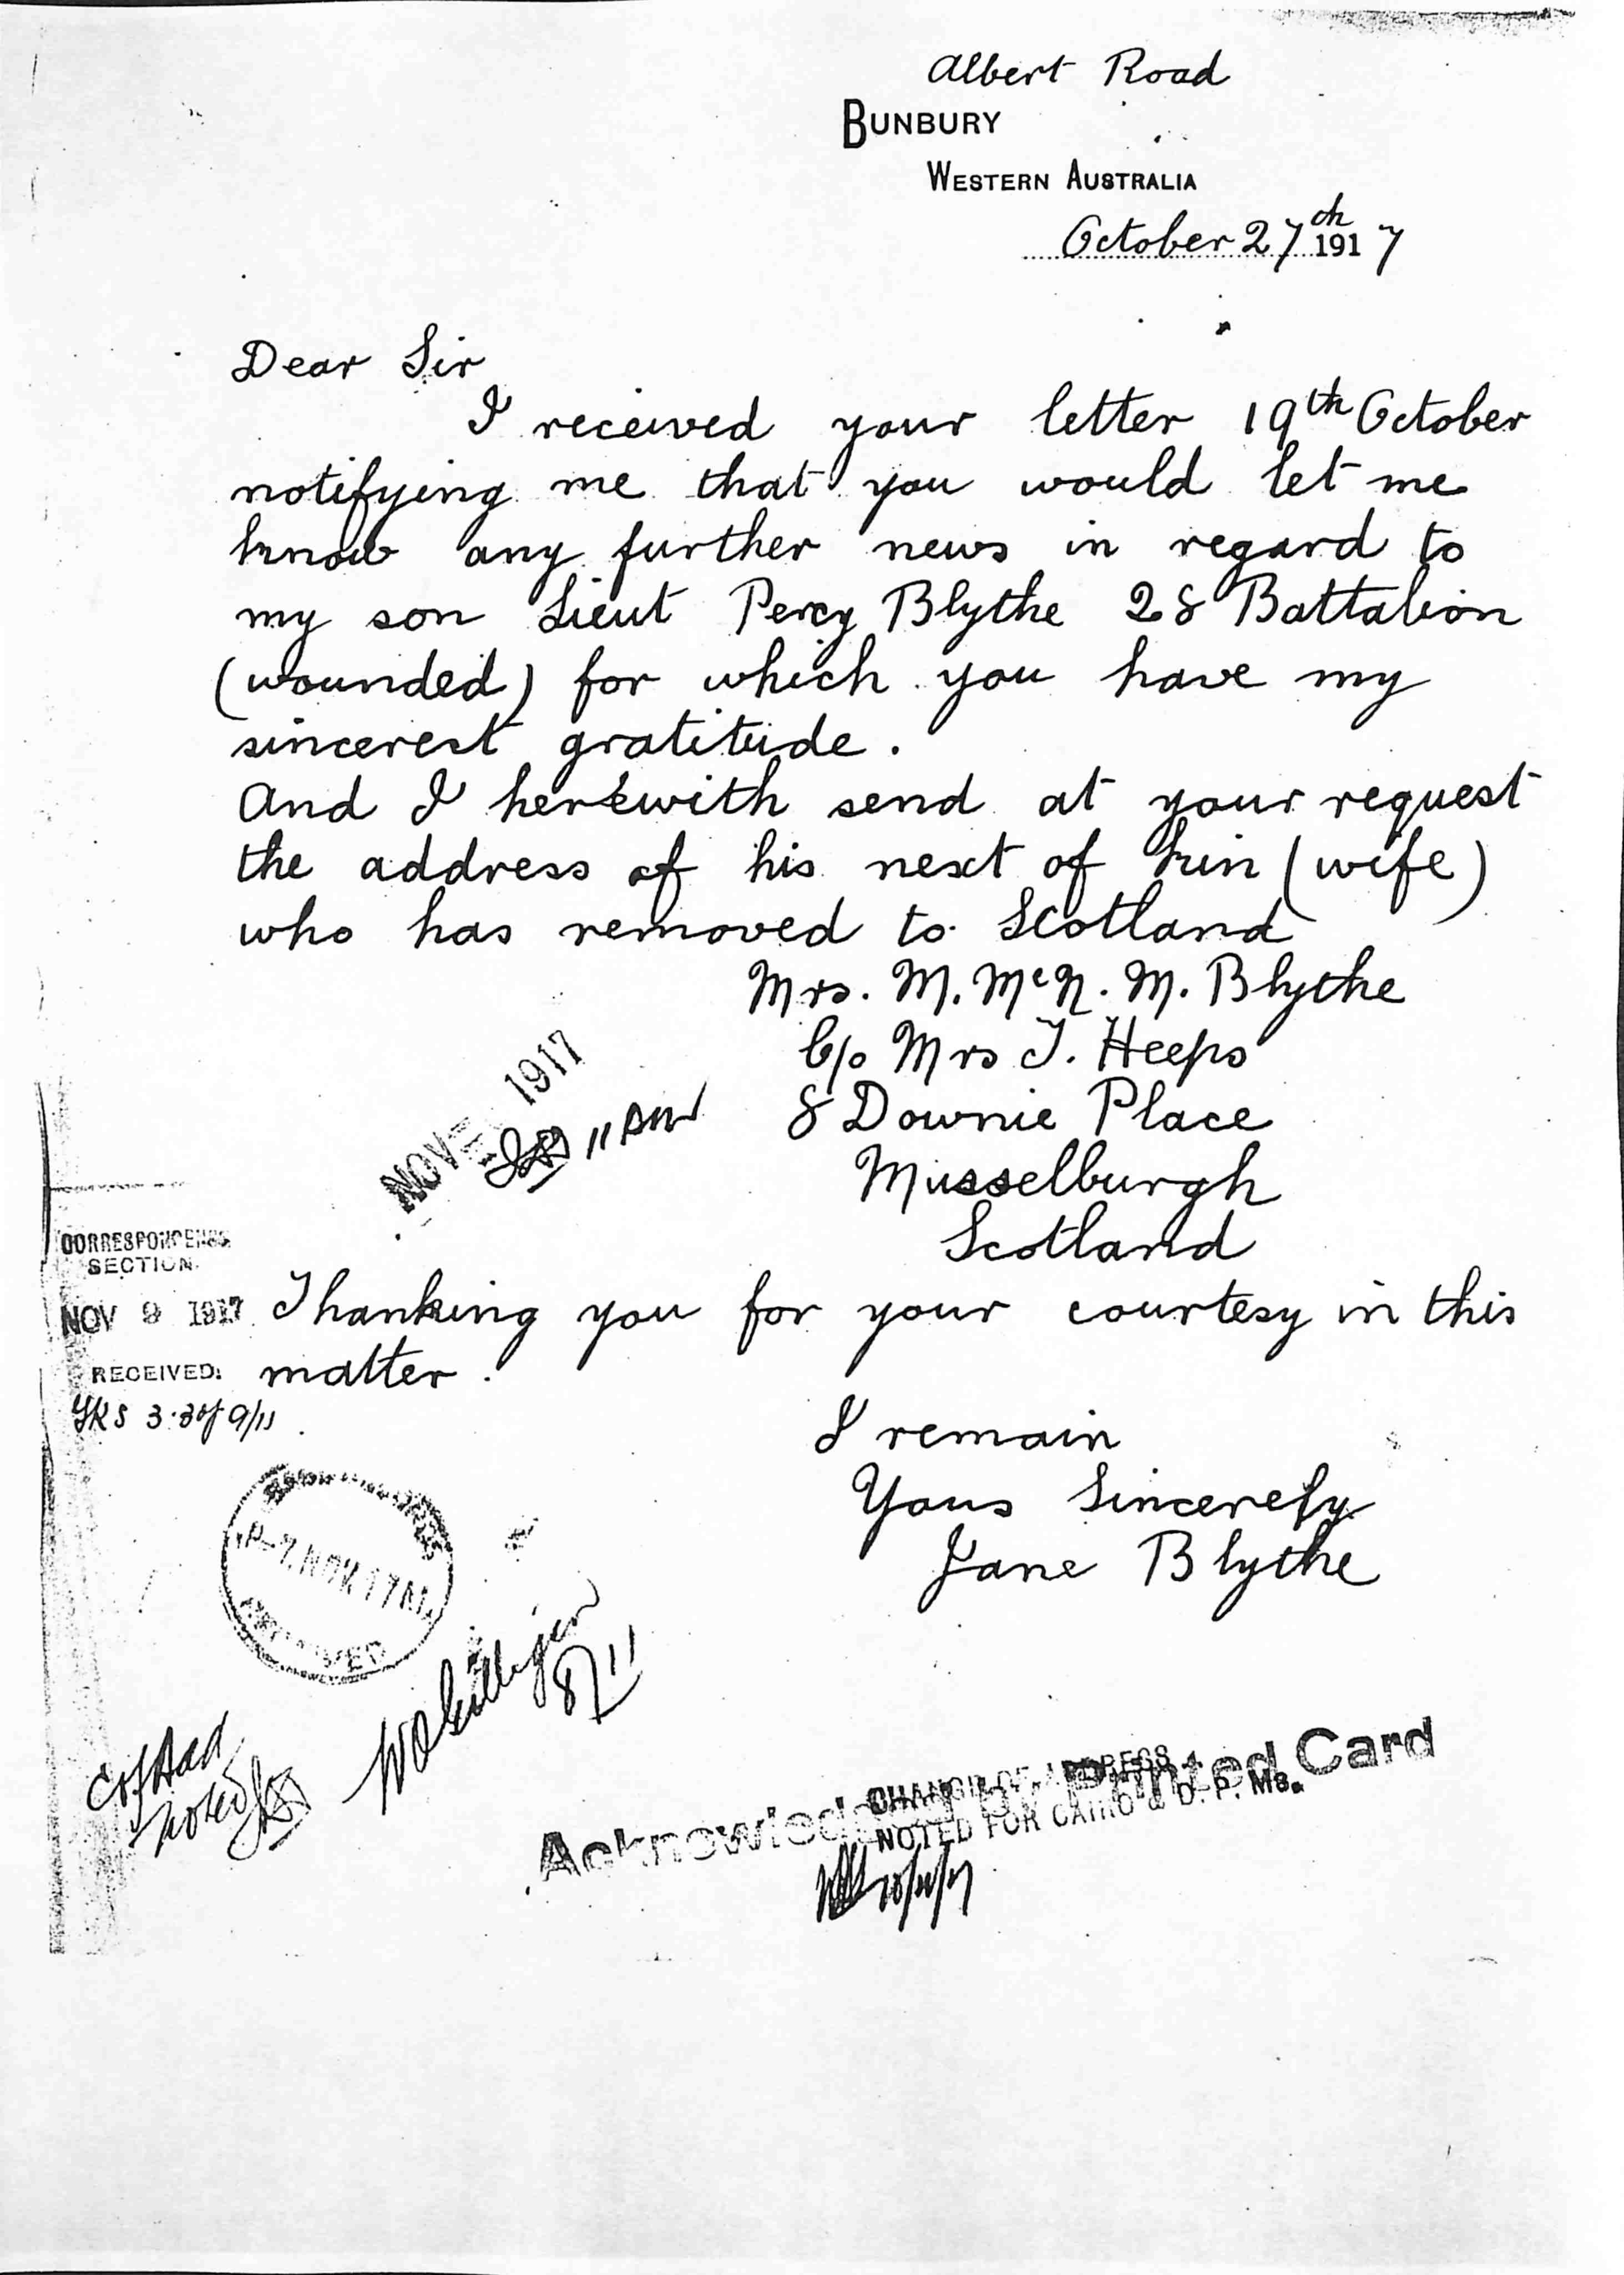 Albert Road
BUNBURY
WESTERN AUSTRALIA
October 27th 1917
Dear Sir
I received your letter 19th October
notifying me that you would let me
know any further news in regard to
my son Lieut Percy Blythe 28 Battalion
(wounded) for which you have my
sincerest gratitude.
And I herewith send at your request
the address of his next of kin (wife)
who has removed to Scotland
Mrs. M. McN. M. Blythe
C/o Mrs J. Heeps
8 Downie Place
Musselburgh
Scotland
NOV 1917
11 AM
CORRESPONDENCE
SECTION.
NOV 9 1917
RECEIVED:
3.30 9/11
Thanking you for your courtesy in this
matter.
I remain
Yous Sincerely
Jane Blythe
7.NOV.17
RECEIVED
8/11
noted
Acknowledged by Printed Card
CHANGE OF ADDRESS
NOTED FOR CAIRO & D.P. Ms.